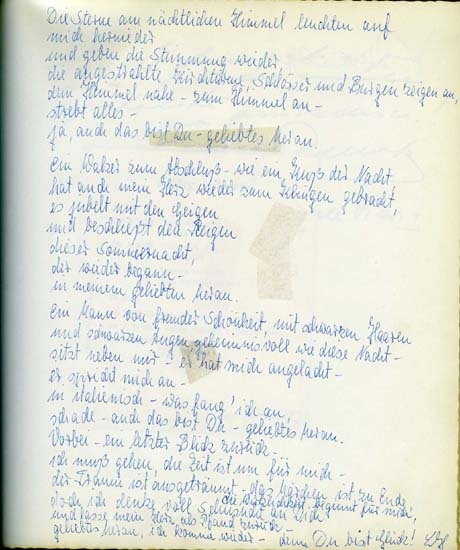 Die Sterne am nächtlichen Himmel leuchten auf
mich hernieder
und geben die Stimmung wieder,
die angestrahlte Kirchtürme, Schlösser und Burgen zeigen an,
dem Himmel nahe - zum Himmel an -
strebt alles -
ja, auch das bist Du - geliebtes Meran.
Ein Walzer zum Abschluß - wie ein Kuß der Nacht
hat auch mein Herz wieder zum Klingen gebracht,
es jubelt mit den Geigen
und beschließt den Reigen
dieser Sommernacht,
der wieder begann -
in meinem geliebten Meran.
Ein Mann von fremder Schönheit, mit schwarzen Haaren
und schwarzen Augen geheimnisvoll wie diese Nacht -
sitzt neben mir - er hat mich angelacht -
er spricht mich an -
in italienisch - was fang' ich an,
schade - auch das bist Du - geliebtes Meran.
Vorbei - ein letzter Blick zurück -
ich muß gehen, die Zeit ist um für mich -
der Traum ist ausgeträumt - das Märchen ist zu Ende
die Wirklichkeit beginnt für mich,
doch ich denke voll Sehnsucht an Dich
und lasse mein Herz als Pfand zurück -
geliebtes Meran, ich komme wieder - denn Du bist Glück!